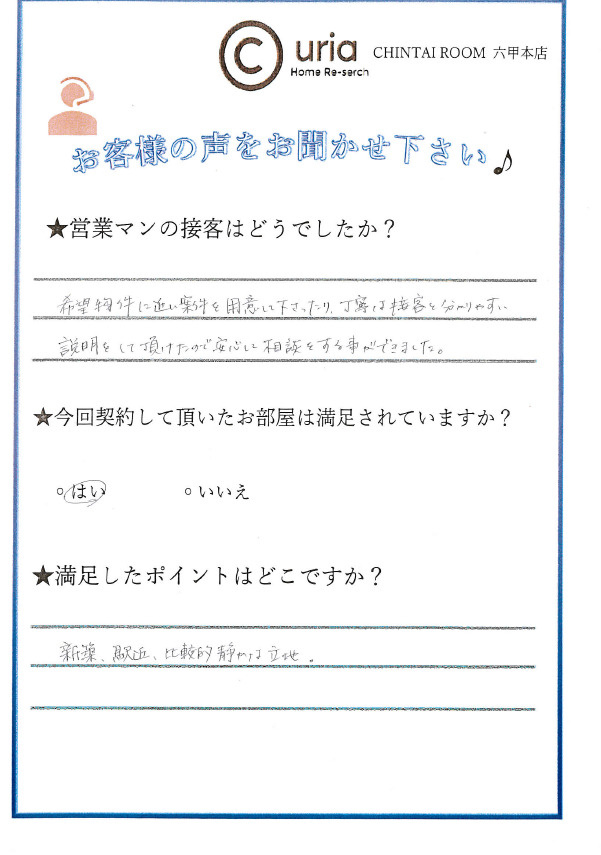 Curia
Home Re-serch
CHINTAI ROOM 六甲本店
お客様の声をお聞かせ下さい♪
★営業マンの接客はどうでしたか？
希望物件に近い案件を用意して下さったり、丁寧な接客と分かりやすい
説明をして頂けたので安心して相談をする事ができました。
★今回契約して頂いたお部屋は満足されていますか？
○はい ○いいえ
★満足したポイントはどこですか？
新築、駅近、比較的静かな立地。